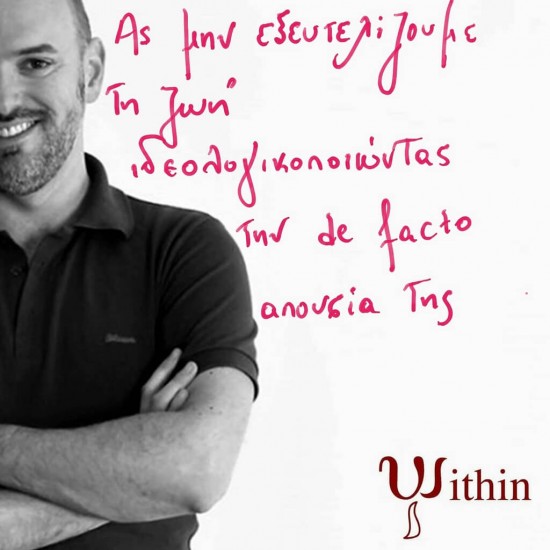 Ας μην εξευτελίζουμε
Τη ζωή
ιδεολογικοποιώντας
την de facto
απουσία Της
Within